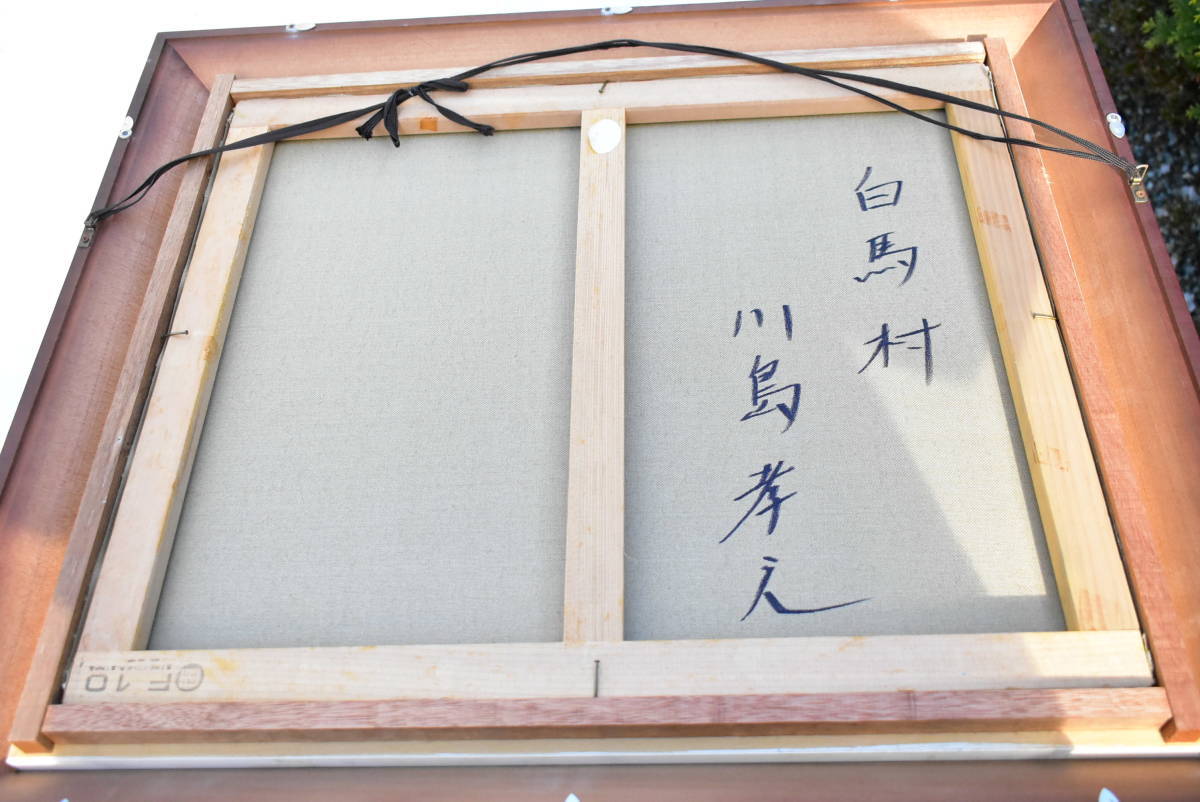 白馬村
川島孝之
F10